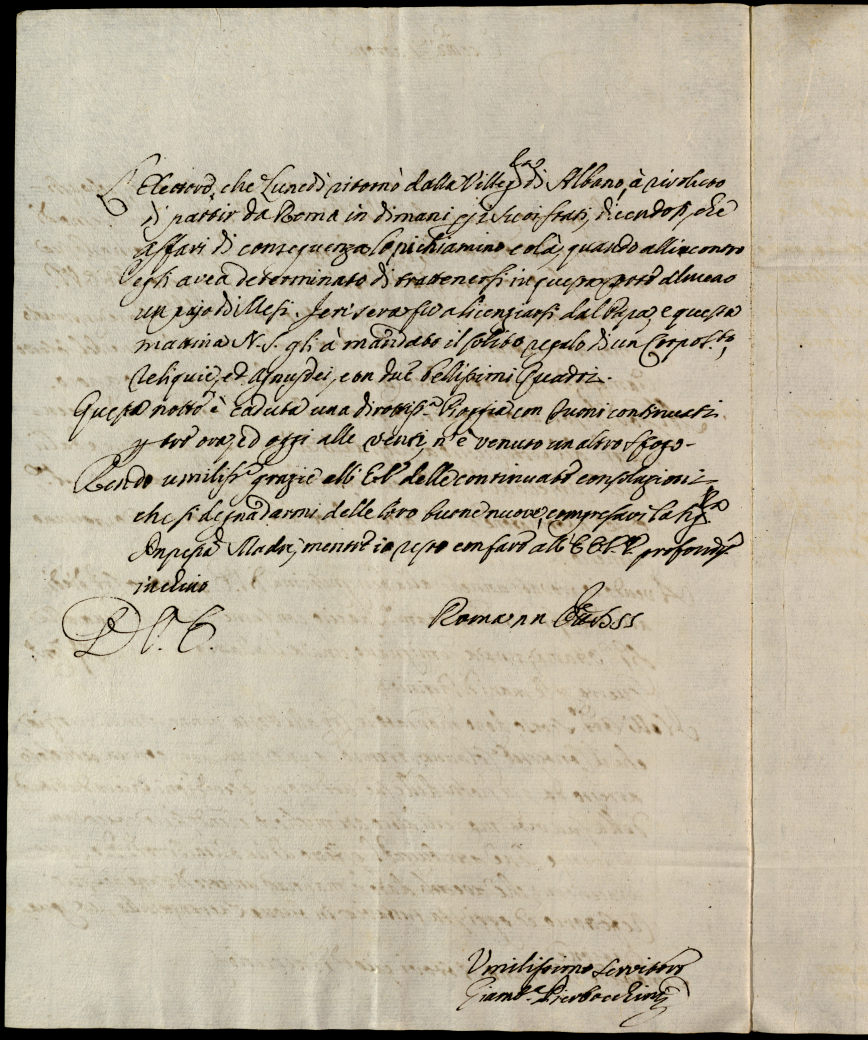 L'Elettore, che Lunedì ritornò dalla Villegg.ra di Albano, à risoluto
di partir da Roma in dimani p i suoi stati, dicendosi, che
affari di conseguenza lo richiamino colà, quando all'incontro
egli avea determinato di trattenersi in questa parte almeno
un pajo di Mesi. Jeri sera fu a licenziarsi dal Papa, e questa
mattina N. S. gli à mandato il solito regalo di un Corpo S.to,
Reliquie, ed Agnusdei, con due bellissimi Quadri.
Questa notte è caduta una dirottiss.a Pioggia con tuoni continuati
p tre ore, ed oggi alle venti n'è venuto un altro sfogo.
Rendo umiliss.e grazie all' E. V. delle continuate consolazioni
che si degna darmi delle loro buone nuove, compresavi la Sig.ra
Madre, mentre io resto con fare all' EE. VV. profondiss.o
inchino
D. V. E.
Roma
Umilissimo Servitore
Giamb.a